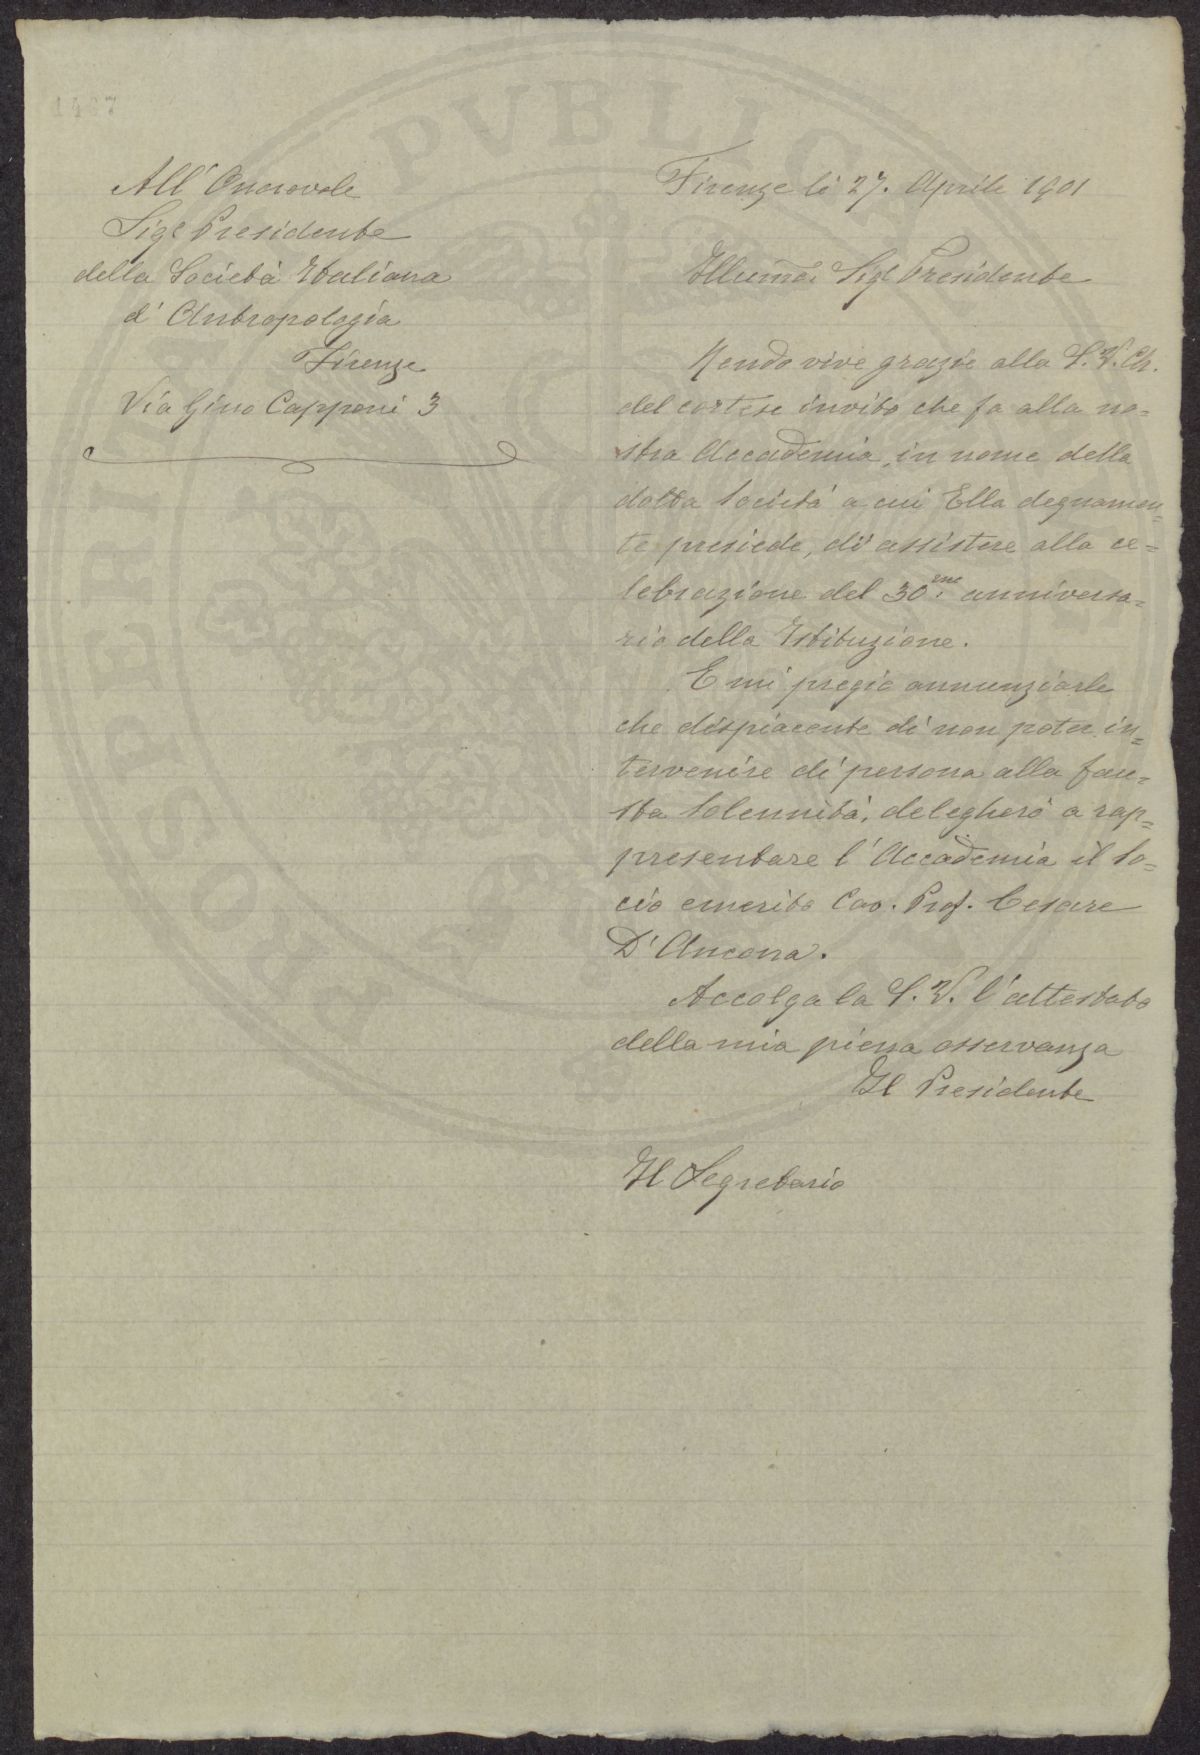 1467
All' Onorevole
Sigr Presidente
della Società Italiana
d' Antropologia
Firenze
Via Gino Capponi 3
Firenze li 27. Aprile 1901
Illumo Sigr Presidente
Rendo vive grazie alla S. V. Ch.
del cortese invito che fa alla no=
stra Accademia, in nome della
dotta Società a cui Ella degnamen=
te presiede, di assistere alla ce=
lebrazione del 30.mo anniversa=
rio della Istituzione.
E mi pregio annunziarle
che dispiacente di non poter in=
tervenire di persona alla fau=
sta solennità, delegherò a rap=
presentare l' Accademia il So=
cio emerito Cav. Prof. Cesare
D' Ancona.
Accolga la S. V. l' attestato
della mia piena osservanza
Il Presidente
Il Segretario